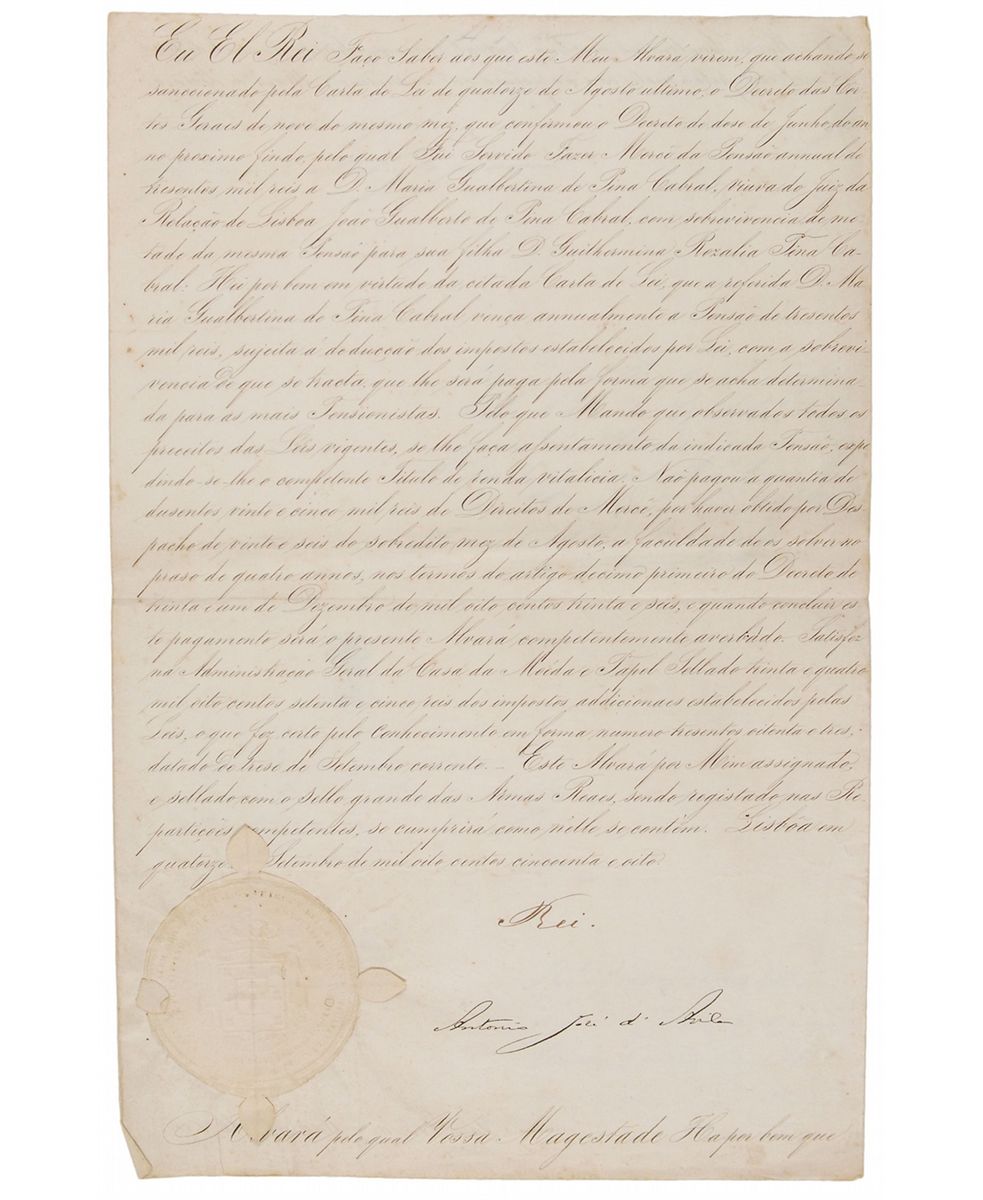 Eu El Rei Faço Saber aos que este Meu Alvará virem, que achando se
sanccionado pela Carta de Lei de quatorze de Agosto ultimo, o Decreto das Côr-
tes Geraes de nove do mesmo mez, que confirmou o Decreto de dose de Junho do an-
no proximo findo, pelo qual Fui Servido Fazer Mercê da Pensão annual de
tresentos mil reis a D. Maria Gualbertina de Pina Cabral, viuva do Juiz da
Relação de Lisboa João Gualberto de Pina Cabral, com sobrevivencia de me-
tade da mesma Pensão para sua filha D. Guilhermina Rozalia Pina Ca-
bral: Hei por bem em virtude da citada Carta de Lei, que a referida D. Ma-
ria Gualbertina de Pina Cabral vença annualmente a Pensão de tresentos
mil reis, sujeita á deducção dos impostos estabelecidos por Lei, com a sobrevi-
vencia de que se tracta, que lhe será paga pela forma que se acha determina-
da para as mais Pensionistas. Pelo que Mando que observados todos os
preceitos das Leis vigentes, se lhe faça assentamento da indicada Pensão, expe-
dindo-se-lhe o competente Titulo de renda vitalicia. Não pagou a quantia de
dusentos vinte e cinco mil reis de Direitos de Mercê, por haver obtido por Des-
pacho de vinte e seis do sobredito mez de Agosto, a faculdade de os solver no
praso de quatro annos, nos termos do artigo decimo primeiro do Decreto de
trinta e um de Dezembro de mil oito centos trinta e seis, e quando concluir es-
te pagamento será o presente Alvará competentemente averbado. Satisfez
na Administração Geral da Casa da Moéda e Papel Sellado trinta e quatro
mil oito centos setenta e cinco reis dos impostos addicionaes estabelecidos pelas
Leis, o que fez certo pelo Conhecimento em forma numero tresentos oitenta e tres,
datado de trese de Setembro corrente. Este Alvará por Mim assignado,
e sellado com o Sello grande das Armas Reaes, sendo registado nas Re-
partições competentes, se cumprirá como n'elle se contêm. Lisbôa em
quatorze Setembro de mil oito centos cincoenta e oito
Rei.
Antonio José d'Avila
Alvará pelo qual Vossa Magestade Ha por bem que